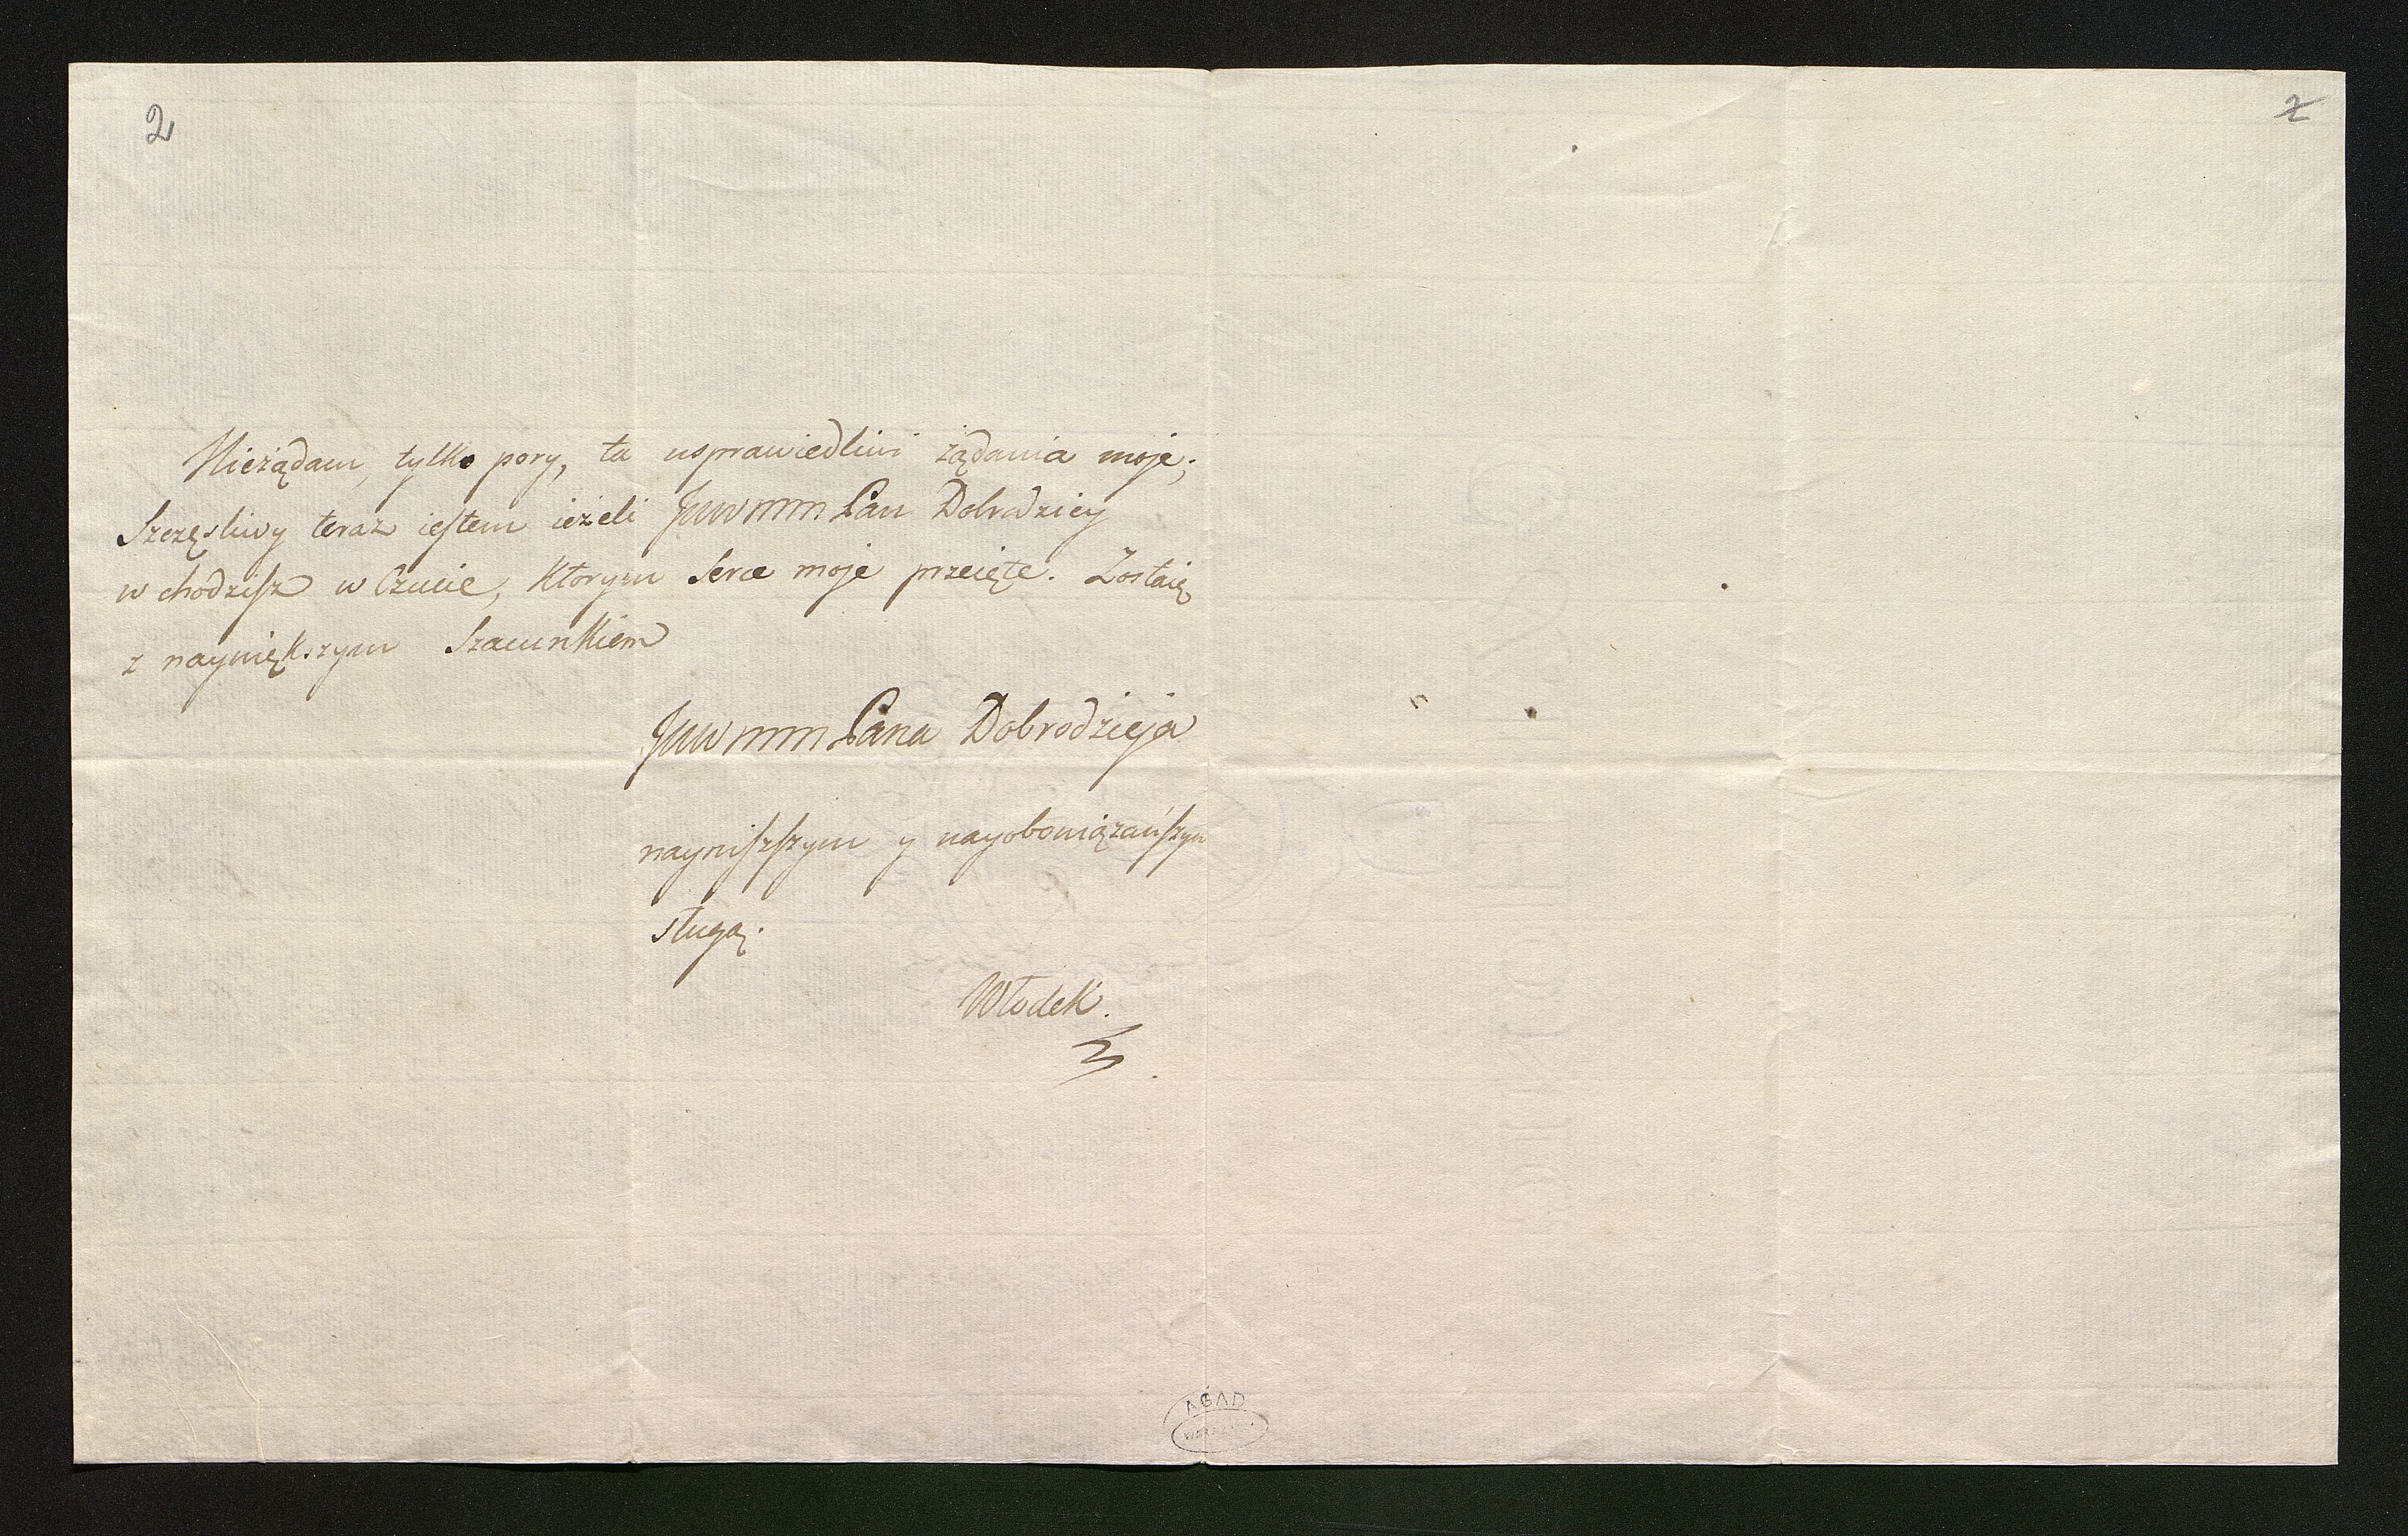 2
2
Nieżądam, tylko pory, ta usprawiedliwi żądania moje;
Szczęsliwy teraz iestem ieżeli JWWMM Pan Dobrodziey
w chodzisz w Czucie, ktorym Serce moje przeięte. Zostaię
z naywiększym Szacunkiem
JWWMM Pana Dobrodzieja
nayniższym y nayobowiązańszym
sługą.
Włodek.
AGAD